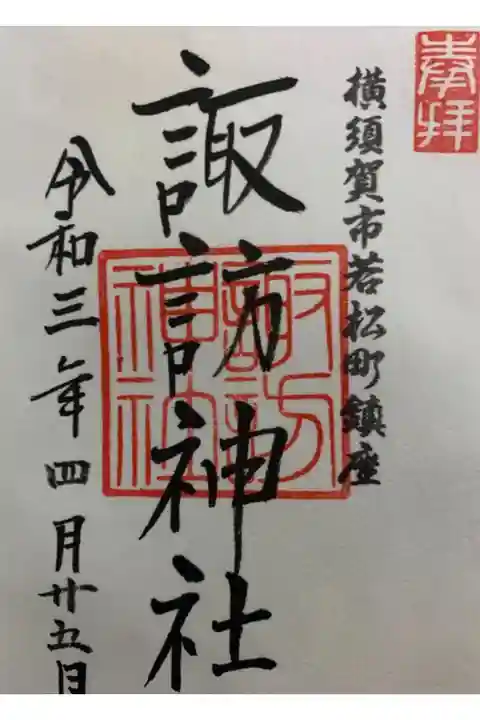 奉拝
横須賀市若松町鎮座
諏訪神社
諏訪
神社
令和三年四月廿五日